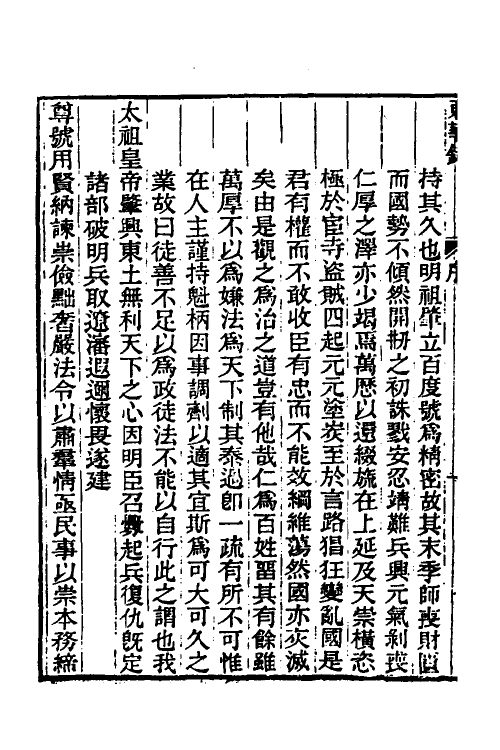 東華錄 序
持其久也明祖肇立百度號爲精密故其末季師喪財匱
而國勢不傾然開刱之初誅戮安忍靖難兵興元氣剝喪
仁厚之澤亦少竭焉萬歷以還綴旒在上延及天崇橫恣
極於宦寺盜賊四起元元塗炭至於言路猖狂變亂國是
君有權而不敢收臣有忠而不能效綱維蕩然國亦灾滅
矣由是觀之爲治之道豈有他哉仁爲百姓畱其有餘雖
萬厚不以爲嫌法爲天下制其泰過卽一疏有所不可惟
在人主謹持魁柄因事調劑以適其宜斯爲可大可久之
業故曰徒善不足以爲政徒法不能以自行此之謂也我
太祖皇帝肇興東土無利天下之心因明臣召釁起兵復仇旣定
諸部破明兵取遼瀋遐邇懷畏遂建
尊號用賢納諫崇儉黜奢嚴法令以肅羣情亟民事以崇本務締